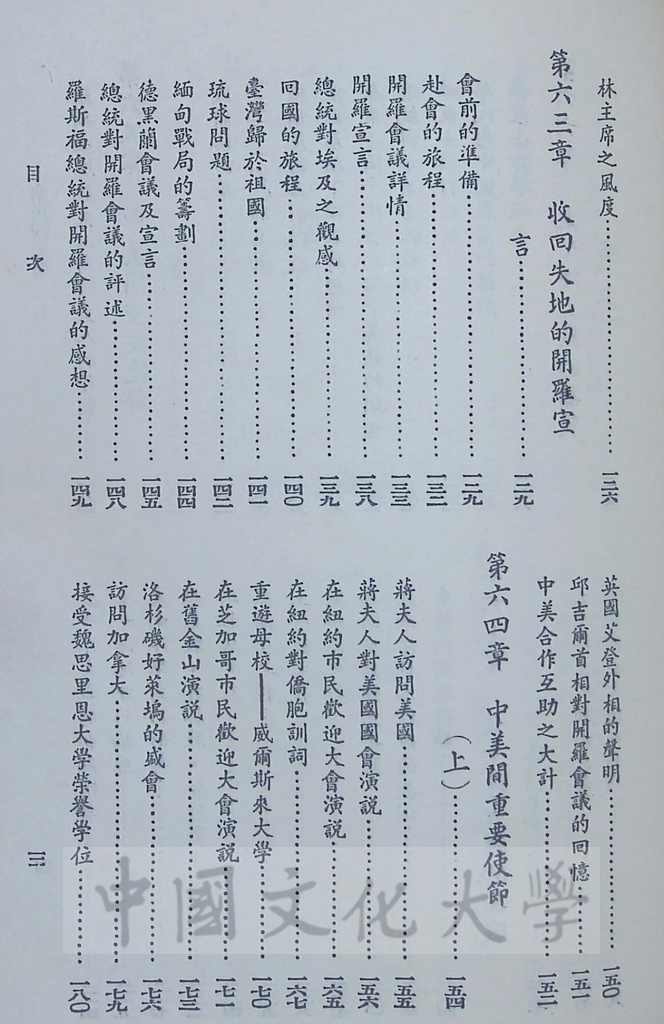 林主席之風度……一二六
第六三章　收回失地的開羅宣
言……一二九
會前的準備……一二九
赴會的旅程……一三二
開羅會議詳情……一三三
開羅宣言……一三八
總統對埃及之觀感……一三九
回國的旅程……一四〇
臺灣歸於祖國……一四一
琉球問題……一四二
緬甸戰局的籌劃……一四四
德黑蘭會議及宣言……一四五
總統對開羅會議的評述……一四八
羅斯福總統對開羅會議的感想……一四九
目次
英國艾登外相的聲明……一五〇
邱吉爾首相對開羅會議的回憶……一五一
中美合作互助之大計……一五二
第六四章　中美間重要使節
（上）……一五四
蔣夫人訪問美國……一五五
蔣夫人對美國國會演說……一五六
在紐約市民歡迎大會演說……一六五
在紐約對僑胞訓詞……一六七
重遊母校——威爾斯來大學……一七〇
在芝加哥市民歡迎大會演說……一七一
在舊金山演說……一七三
洛杉磯好萊塢的盛會……一七六
訪問加拿大……一七九
接受魏思里恩大學榮譽學位……一八〇
三
中國文化大學